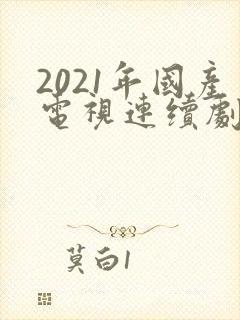 2021年國產
電視連續劇
莫白1